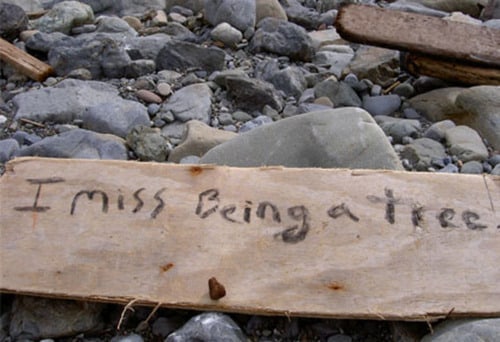 I miss Being a tree.